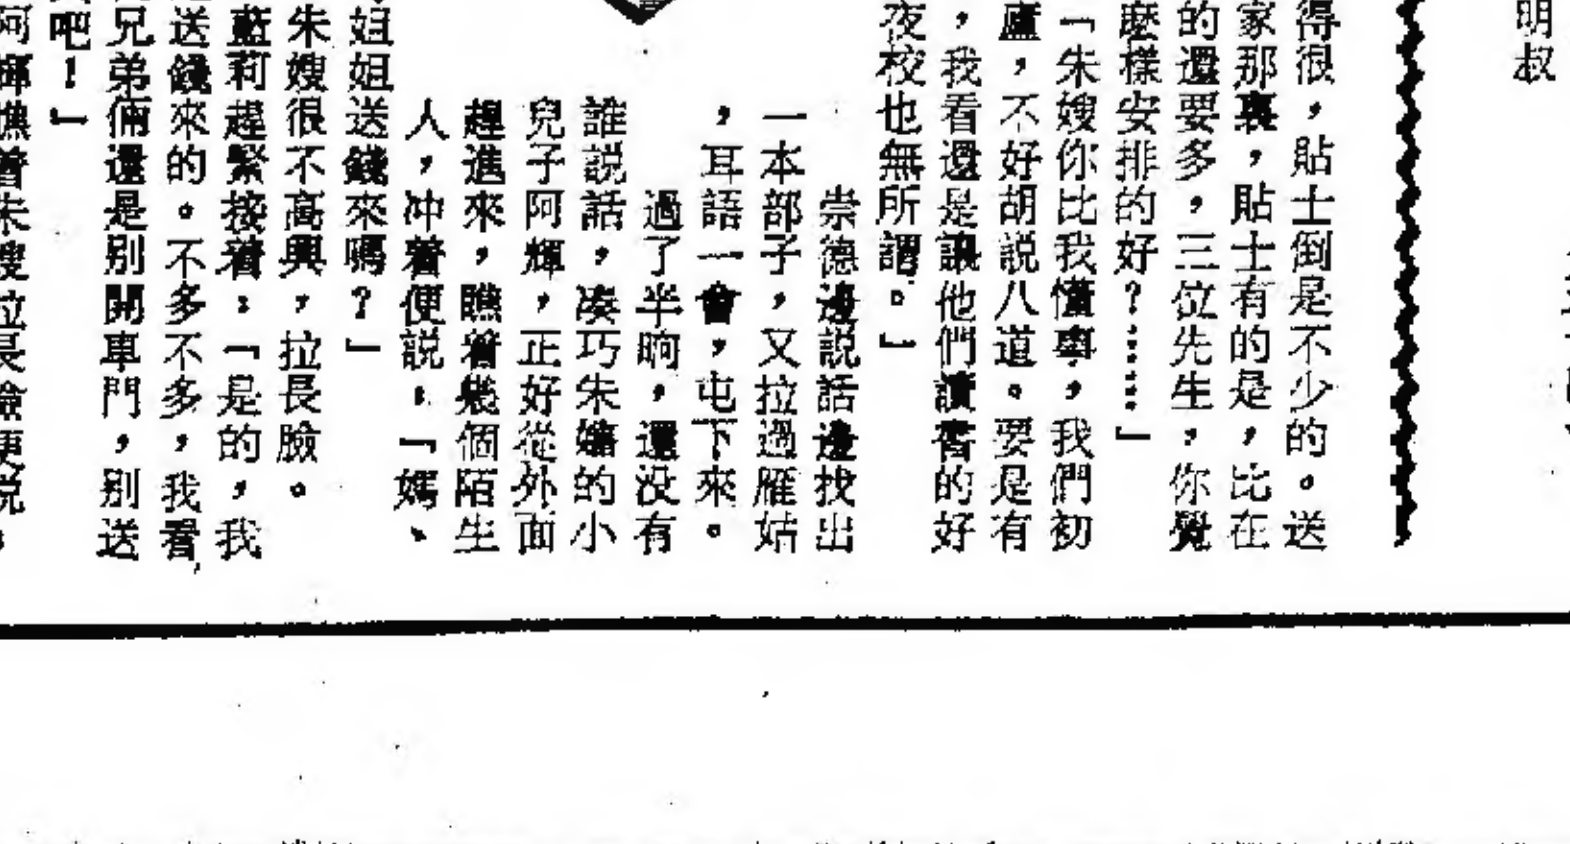 明叔
得很，貼士倒是不少的。送
家那裏，貼士有的是，比在
的還要多，三位先生，你覺
麼樣安排的好？……」
「朱嫂你比我懂事，我們初
廬，不好胡説八道。要是有
，我看還是讓他們讀書的好
夜校也無所謂。」
崇德邊説話邊找出
一本部子，又拉過雁姑
，耳語一會，屯下來。
過了半晌，還没有
誰説話，凑巧朱嬸的小
兒子阿輝，正好從外面
趕進來，瞧着幾個陌生
人，冲着便説：「媽、
姐姐送錢來嗎？」
朱嫂很不高興，拉長臉。
藍莉趕緊接着：「是的，我
送錢來的。不多不多，我看
兄弟倆還是別開車門，別送
吧！」
阿輝憔着朱嫂拉長臉便説：